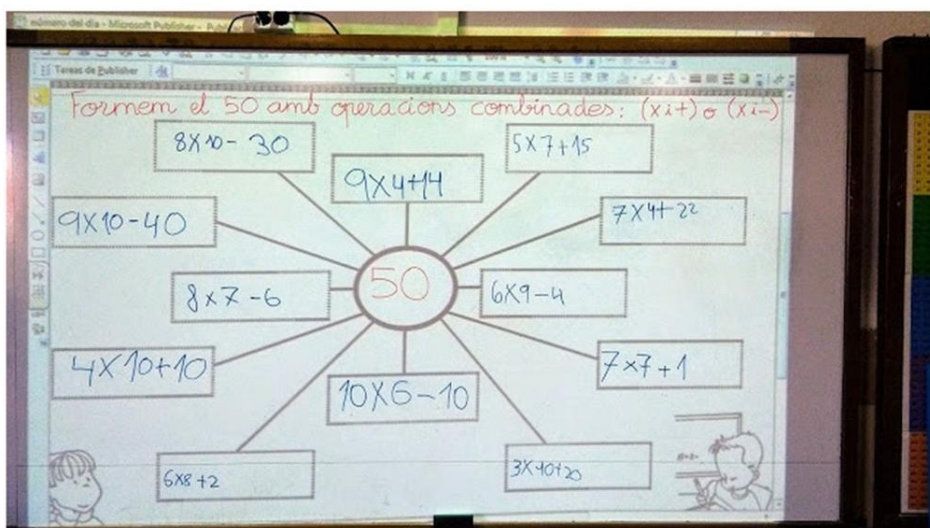 número del dia - Microsoft Publisher -
Tareas de Publisher
Formem el 50 amb operacions combinades: (x i +) o (x i -)
8x10-30
9x4+14
5x7+15
9x10-40
7x4+22
50
8x7-6
6x9-4
4x10+10
7x7+1
10x6-10
6x8+2
3x10+20